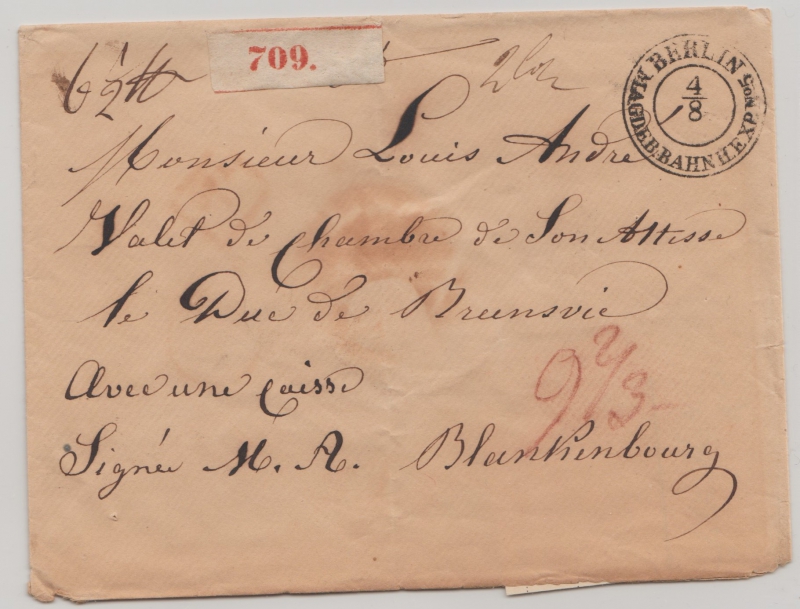 6 1/2 ℔
709.
BERLIN
MAGDEB. BAHNH. EXP. No 5
4/8
Monsieur Louis André
Valet de Chambre de Son Altesse
le Duc de Brunsvic
Avec une Caisse
9 2/3
Signée M. A. Blankenbourg